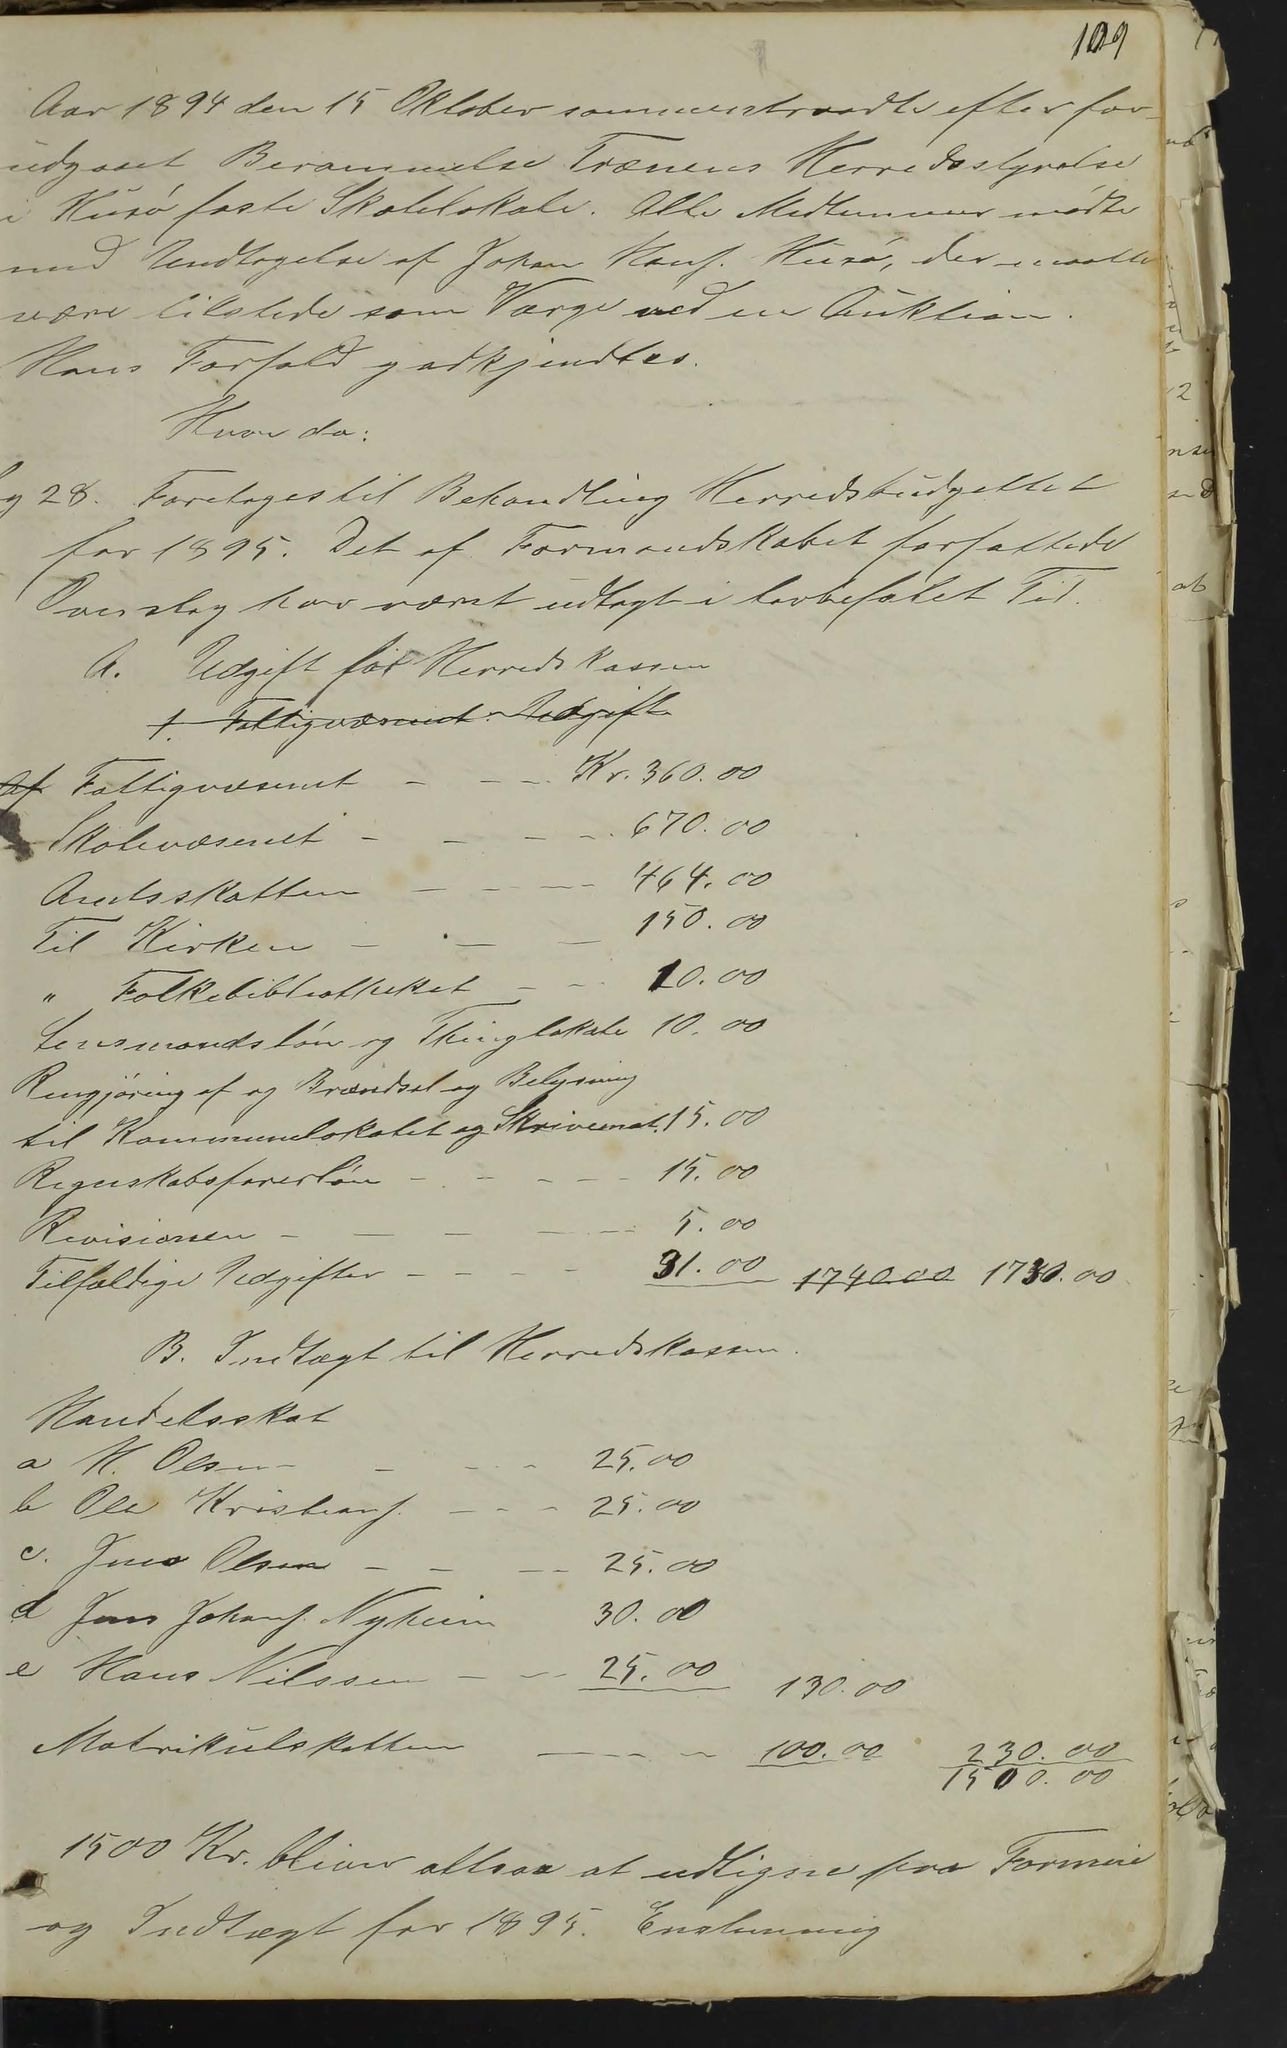 109
Aar 1894 den 15 Oktober sammentraadte efter for-
udgaaet Berammelse Trænens Herredsstyrelse
i Husö faste Skolelokale. Alle Medlemmer mødte
med Undtagelse af Johan Hans. Husö, der maatte
være tilstede som Værge ved en Auktion.
Hans Forfald godkjendtes.
Hvor da:
28. Foretoges til Behandling Herredsbudgettet
for 1895. Det af Formandskabet forfattede
Overslag har været udlagt i lovbefalet Tid.
A. Udgift for Herredskassen
1. Fattigvæsenet Udgift
Af Fattigvæsenet - - - Kr. 360.00
Skolevæsenet - - - - 670.00
Amtsskatten - - - - 464.00
Til Kirken - - - 150.00
" Folkebibliotheket - - 10.00
Lensmandslön og Thinglokale 10.00
Rengjöring af og Brændsel og Belysning
til Kommunelokalet og Skrivemat. 15.00
Regnskabsførerlön - - - - - 15.00
Revisionen - - - - - 5.00
Tilfældige Udgifter - - - - 31.00 1740.00 1730.00
B. Indtægt til Herredskassen.
Handelsskat
a H. Olsen - - - - 25.00
b Ole Kristians. - - - 25.00
c. Jens Olsen - - - - 25.00
d Jens Johans. Nyheim 30.00
e Hans Nilssen - - - 25.00 130.00
Matrikulskatten - - - - 100.00 230.00
1500.00
1500 Kr. bliver altsaa at udligne paa Formue
og Indtægt for 1895. Enstemmig